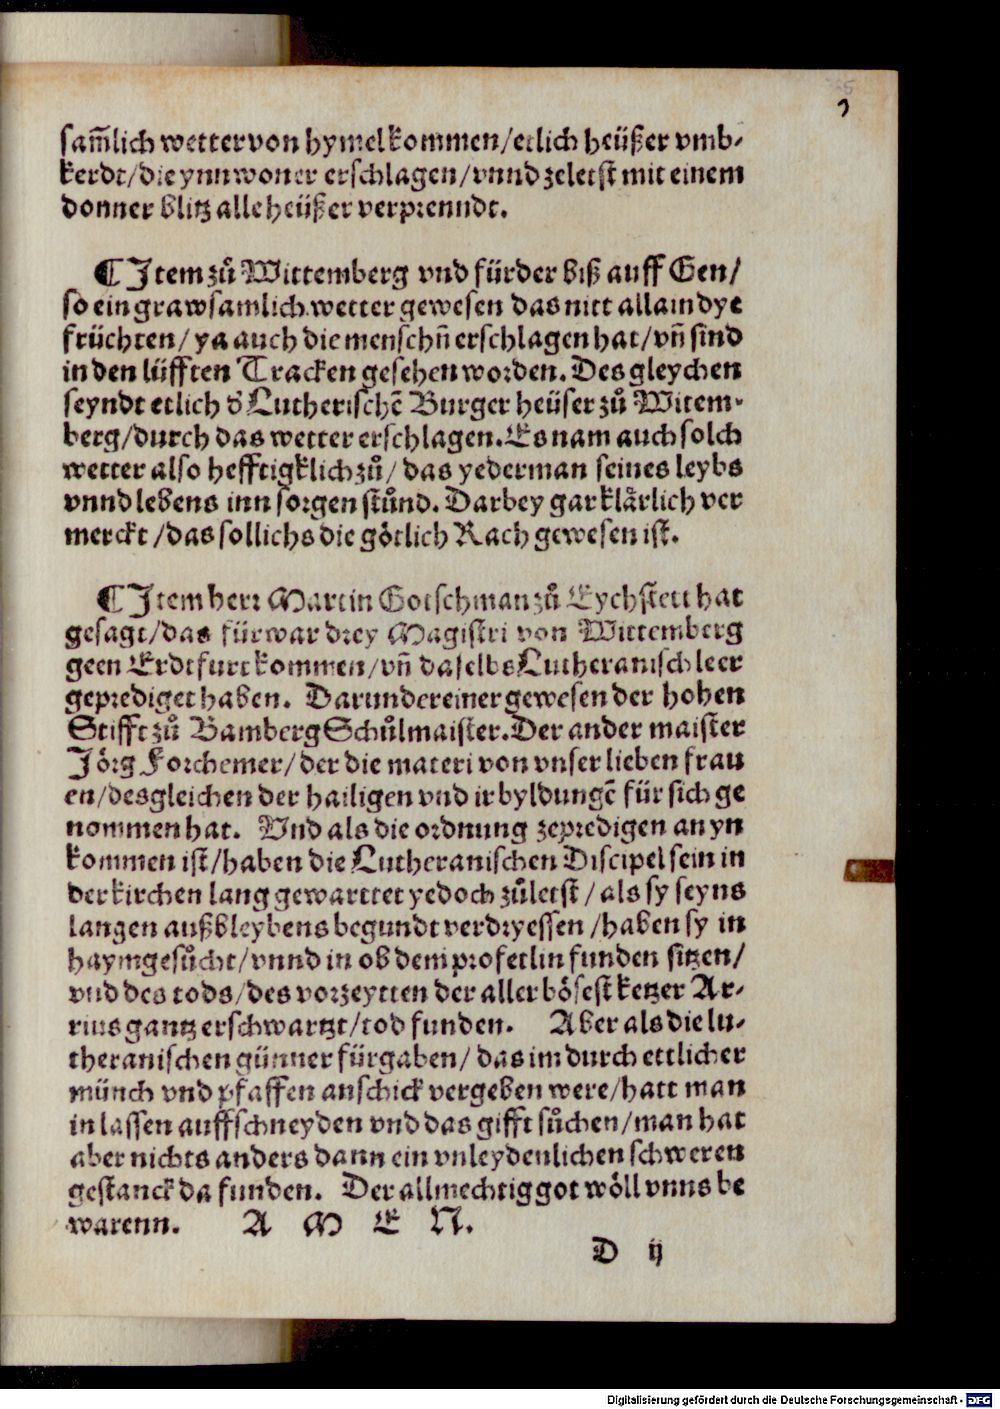 sam̃lich wetter von hymel kommen/etlich heüßer vmb-
kerdt/die ynnwoner erschlagen/vnnd zeletst mit einem
donner blitz alle heüßer verprenndt.
¶Item zů Wittemberg vnd fürder biß auff Gen/
so ein grawsamlich wetter gewesen das nitt allain dye
früchten/ ya auch die menschñ erschlagen hat/vñ sind
in den lüfften Tracken gesehen worden. Des gleychen
seyndt etlich d̕ Lutherischẽ Burger heüser zů Witem-
berg/durch das wetter erschlagen. Es nam auch solch
wetter also hefftigklich zů/ das yederman seines leybs
vnnd lebens inn sorgen stůnd. Darbey gar klärlich ver
merckt/das sollichs die götlich Rach gewesen ist.
¶Item herr Martin Gotschman zů Eychstett hat
gesagt/das fürwar drey Magistri von Wittemberg
geen Erdtfurt kommen/vñ daselbs Lutheranisch leer
geprediget haben. Darunder einer gewesen der hohen
Stifft zů Bamberg Schůlmaister. Der ander maister
Jörg Forchemer/ der die materi von vnser lieben frau
en/desgleichen der hailigen vnd ir byldungẽ für sich ge
nommen hat. Vnd als die ordnung zepredigen an yn
kommen ist/haben die Lutheranischen Discipel sein in
der kirchen lang gewarttet yedoch zůletst/ als sy seyns
langen außbleybens begundt verdryessen/haben sy in
haym gesůcht/vnnd in ob dem profetlin funden sitzen/
vnd des tods/des vorzeytten der aller bösest ketzer Ar-
rius gantz erschwartzt/tod funden. Aber als die lu-
theranischen günner fürgaben/ das im durch ettlicher
münch vnd pfaffen anschick vergeben were/hatt man
in lassen auffschneyden vnd das gifft sůchen/man hat
aber nichts anders dann ein vnleydenlichen schweren
gestanck da funden. Der allmechtig got wöll vnns be
warenn. A M E N.
D ij
Digitalisierung gefördert durch die Deutsche Forschungsgemeinschaft - DFG